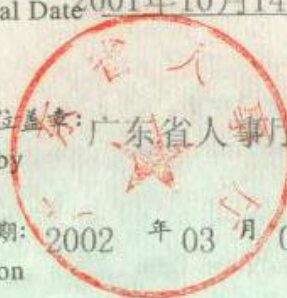 al Date 2001年10月14
位盖章: 广东省人事厅
by
期: 2002 年 03 月 0
on
省人事厅